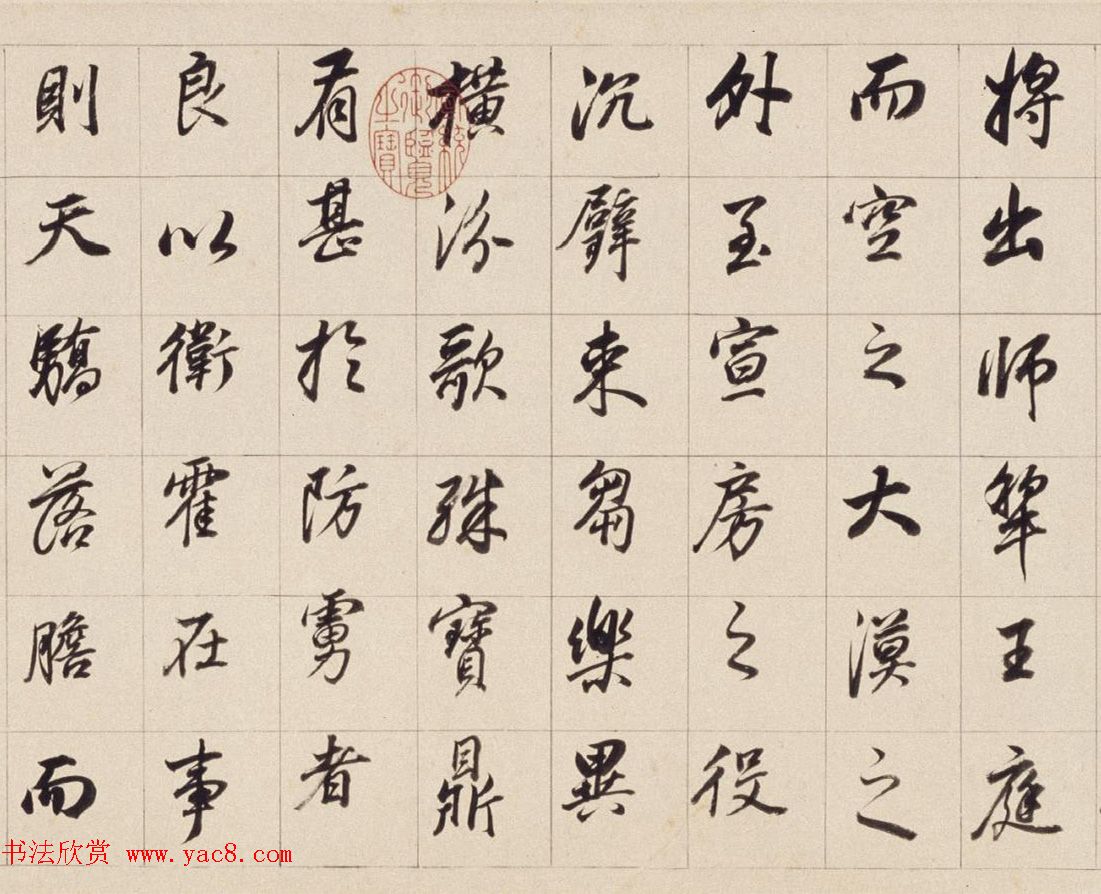 將出師犂王庭
而空之大漠之
外至宣房之役
沉璧束芻樂異
橫汾歌殊寶鼎
有甚於防虜者
良以衛霍在事
則天驕落膽而
宣統御覽之寶
书法欣赏 www.yac8.com